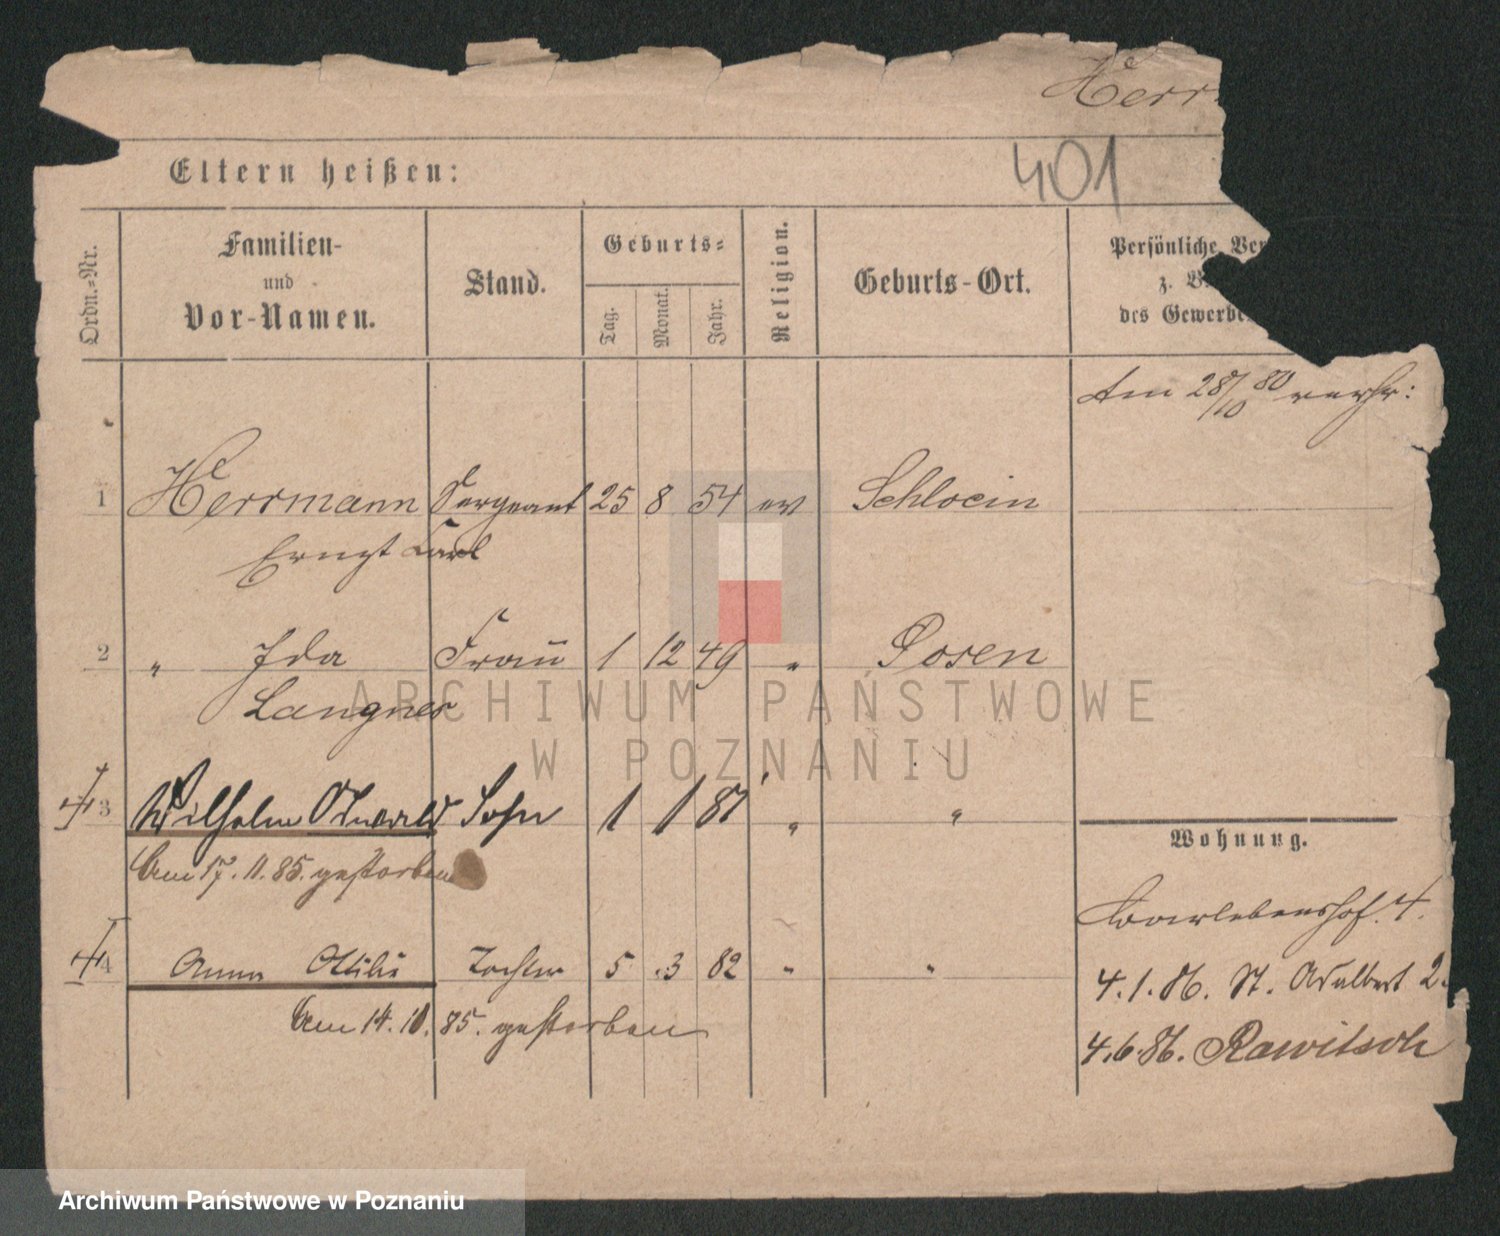 Herr
401
Eltern heißen:
Ordn.-Nr.
Familien-
und
Vor-Namen.
Stand.
Geburts-
Tag.
Monat.
Jahr.
Religion.
Geburts-Ort.
Persönliche Ver
z.
des Gewerbe
Am 28/10 80 verhr:
1 Herrmann Sergeant 25 8 54 ev Schlocin
Ernst Carl
2 " Ida Frau 1 12 49 " Posen
Langner
3 Wilhelm Oswald Sohn 1 1 81 " "
Am 17. 11. 85. gestorben
4 Anna Ottilie Tochter 5 3 82 " "
Am 14. 10. 85. gestorben
Wohnung.
Barlebenshof. 4.
4. 1. 86. St. Adalbert 2.
4. 6. 86. Rawitsch
ARCHIWUM PAŃSTWOWE
W POZNANIU
Archiwum Państwowe w Poznaniu